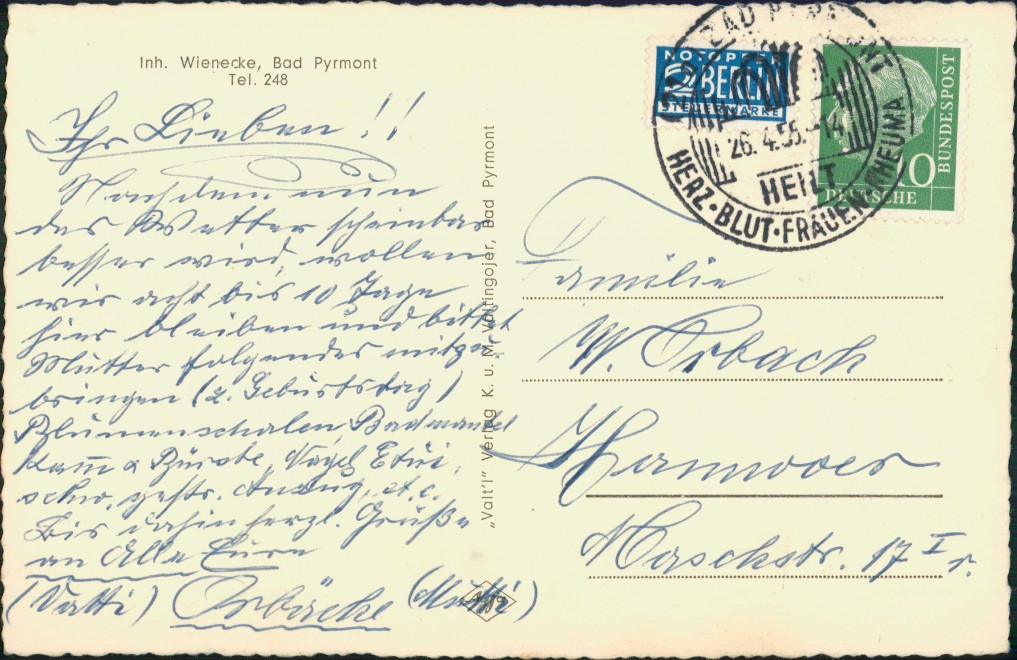 Inh. Wienecke, Bad Pyrmont
Tel. 248
Ihr Lieben!!
Nachdem nun
das Wetter scheinbar
besser wird, wollen
wir acht bis 10 Tage
hier bleiben und bittet
Mutter folgendes mitzu-
bringen (z. Geburtstag)
Blumenschalen, Bademantel
Kamm & Bürste, Nagel Etui,
gestr. Anzug, etc.
Bis dahin herzl. Grüße
an Alle Eure
(Vatti) Orbachs (Mutti)
„Valt'l" Verlag K. u. M. Valtingojer, Bad Pyrmont
NOTOPFER
2 BERLIN
STEUERMARKE
BAD PYRMONT
26.4.55.-14
HEILT
HERZ·BLUT·FRAUEN RHEUMA
10
DEUTSCHE
BUNDESPOST
Familie
W. Orbach
Hannover
Maschstr. 17 I r.